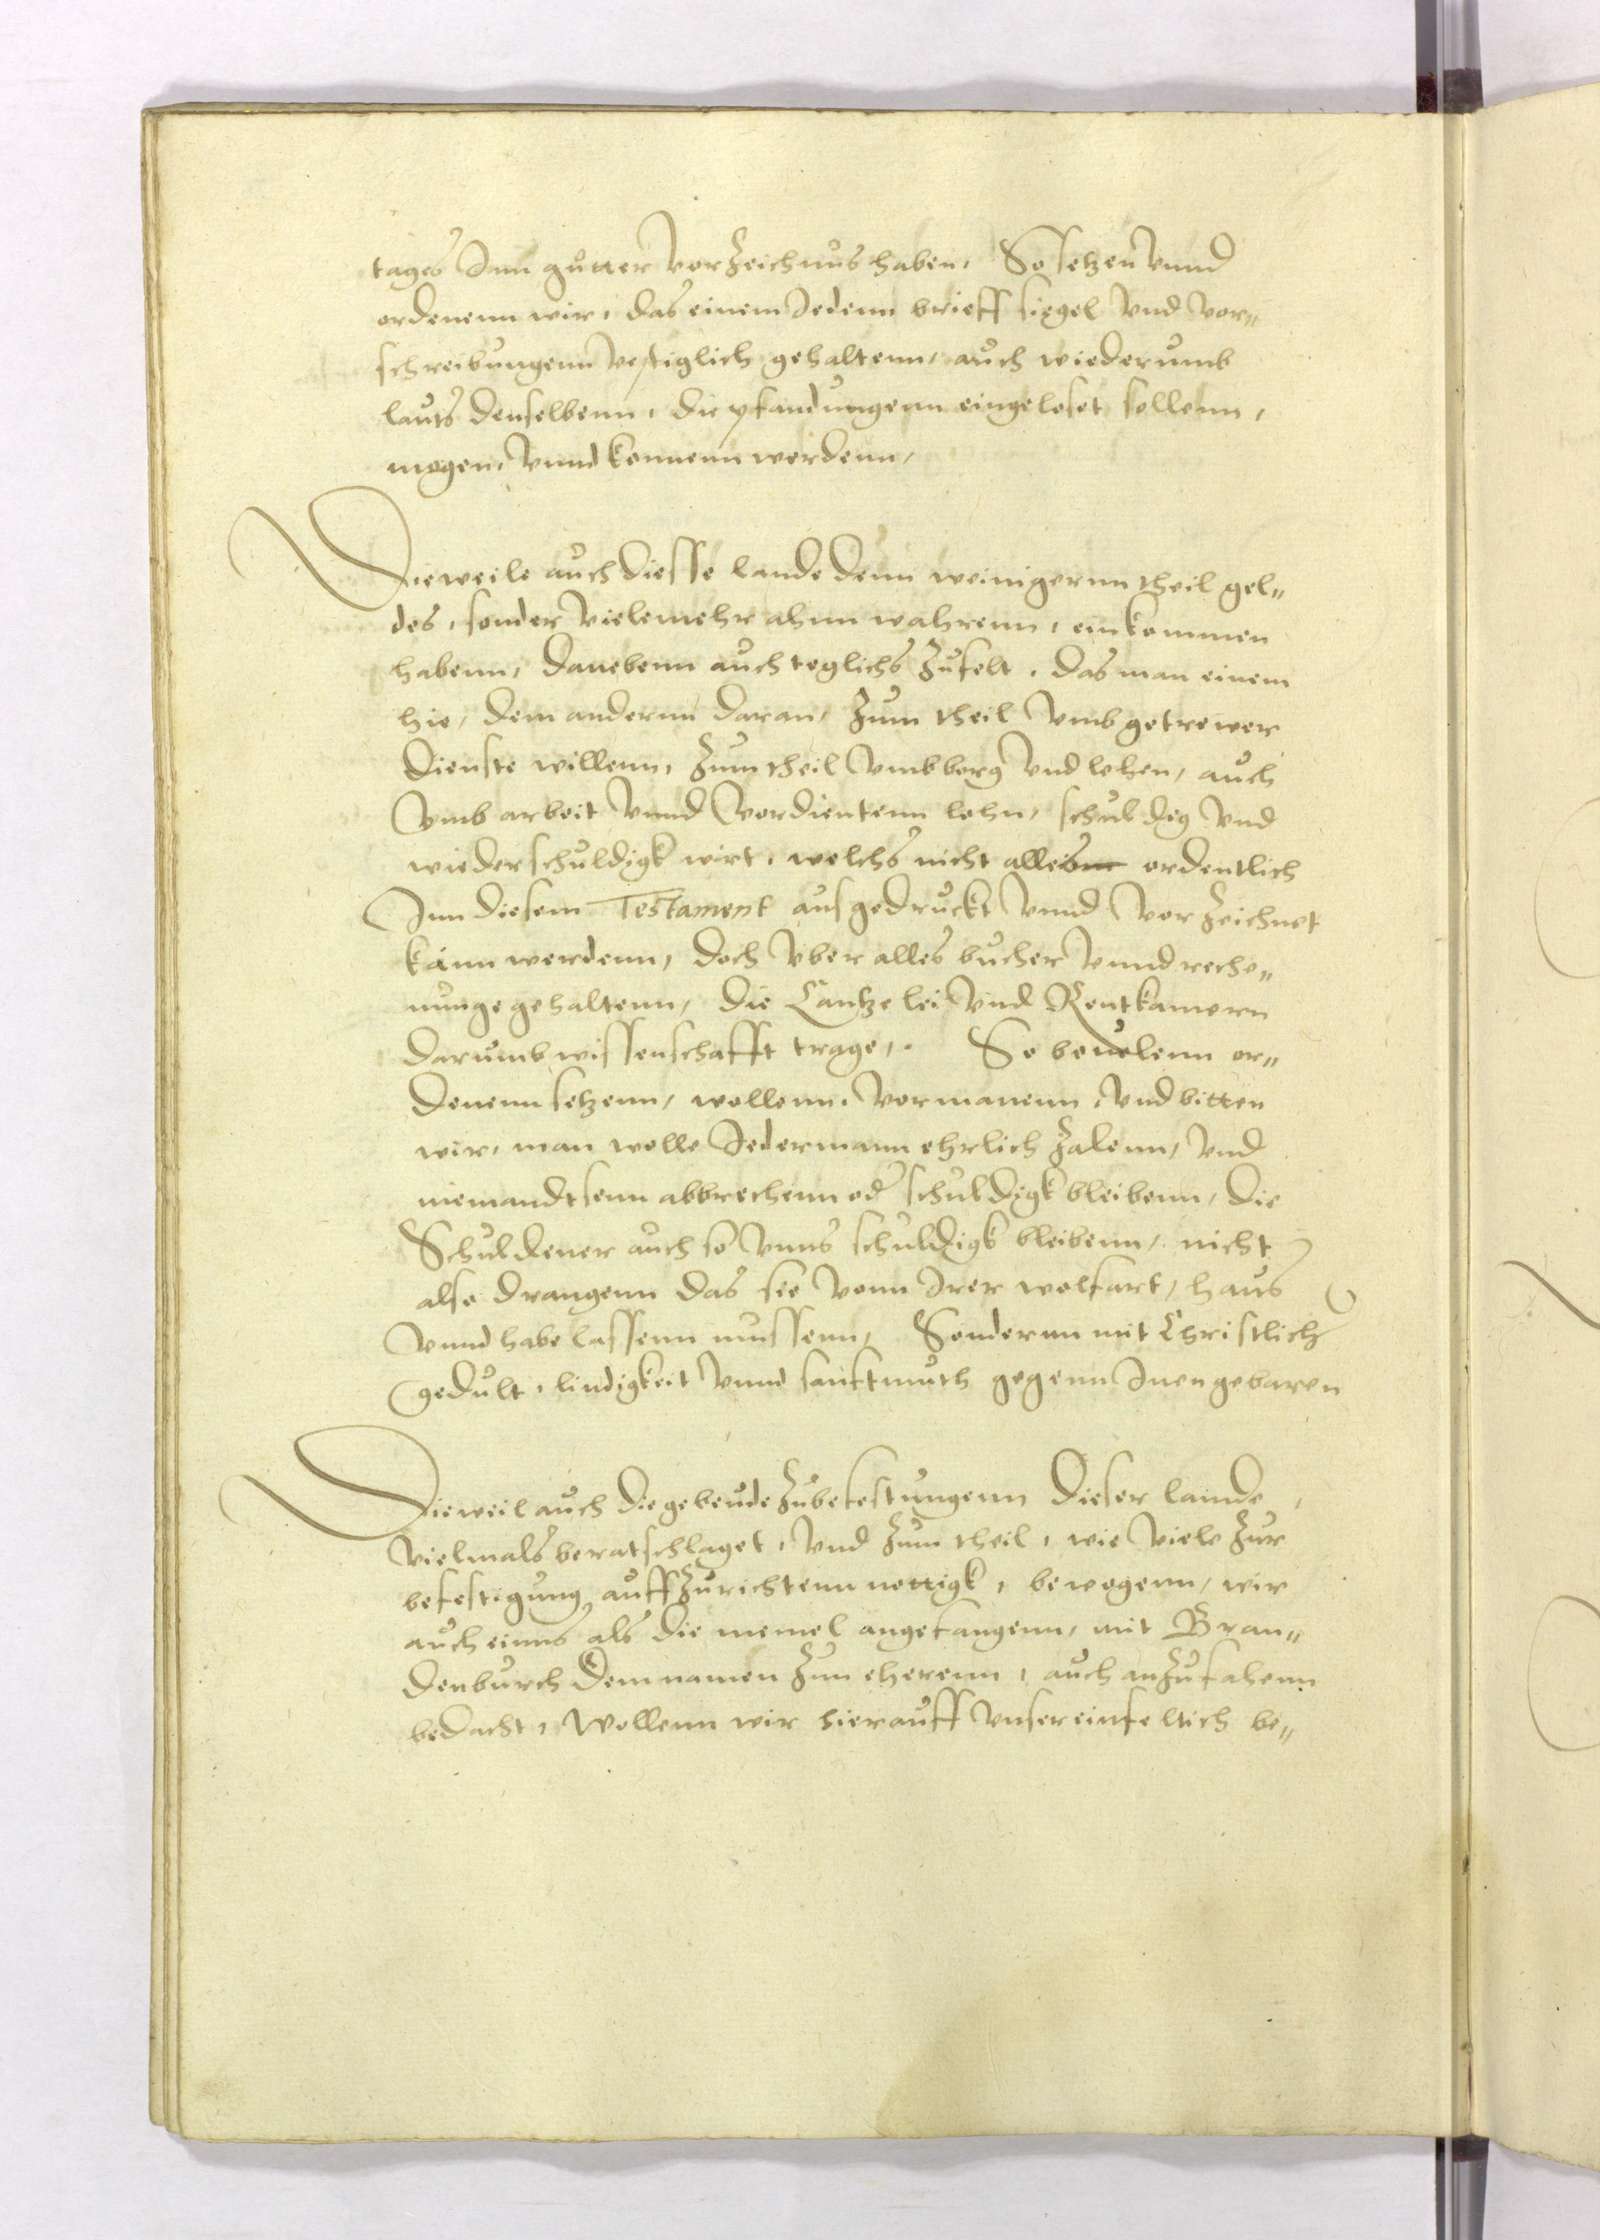 tages Inn gutter vorzeichnus haben, So setzen vnnd
ordenenn wir, das einem Jedenn brieff siegel vnd vor„
schreibungenn vestiglich gehaltenn, auch wiederumb
lauts denselbenn, die pfandungenn eingeloset sollenn,
mogen, vnnd konnenn werdenn,
Dieweile auch diesse lande denn weinigernn theil gel„
des, sonder vielemehr ahnn wahrenn, einkommen
habenn, danebenn auch teglichs zufelt, das man einem
hie, dem andernn daran, zum theil vmb getrewer
dienste willenn, zum theil vmb borg vnd lehen, auch
vmb arbeit vnnd vordientenn lohn, schuldig vnd
wiederschuldigk wirt, welchs nicht alles ordentlich
Inn diesem Testament ausgedruckt vnnd vorzeichnet
kann werdenn, doch vber alles bucher vnnd reche„
nunge gehaltenn, die Cantzelei vnd Rentkamern
darumb wissenschafft trage, So beuelenn or„
denenn setzenn, wollenn, vormanenn, vnd bitten
wir, man wolle Jedermann ehrlich zalenn, vnd
niemandtsenn abbrechenn od schuldigk bleibenn, die
Schuldener auch so vnns schuldigk bleibenn, nicht
also drangenn das sie vonn Irer wolfart, haus
vnnd habe lassenn mussenn, Sondernn mit Christlich
gedult, lindigkeit vnnd sanftmuth gegenn Inen gebaren
Dieweil auch die gebeude zubefestungenn dieser lande,
vielmals beratschlaget, vnd zum theil, wie viele zur
befestigung auffzurichtenn nottigk, bewogenn, wir
auch einns als die memel angefangenn, mit Bran„
denburch dem namen zun eherenn, auch anzufahenn
bedacht, Wollenn wir hierauff vnser einfeltich be„